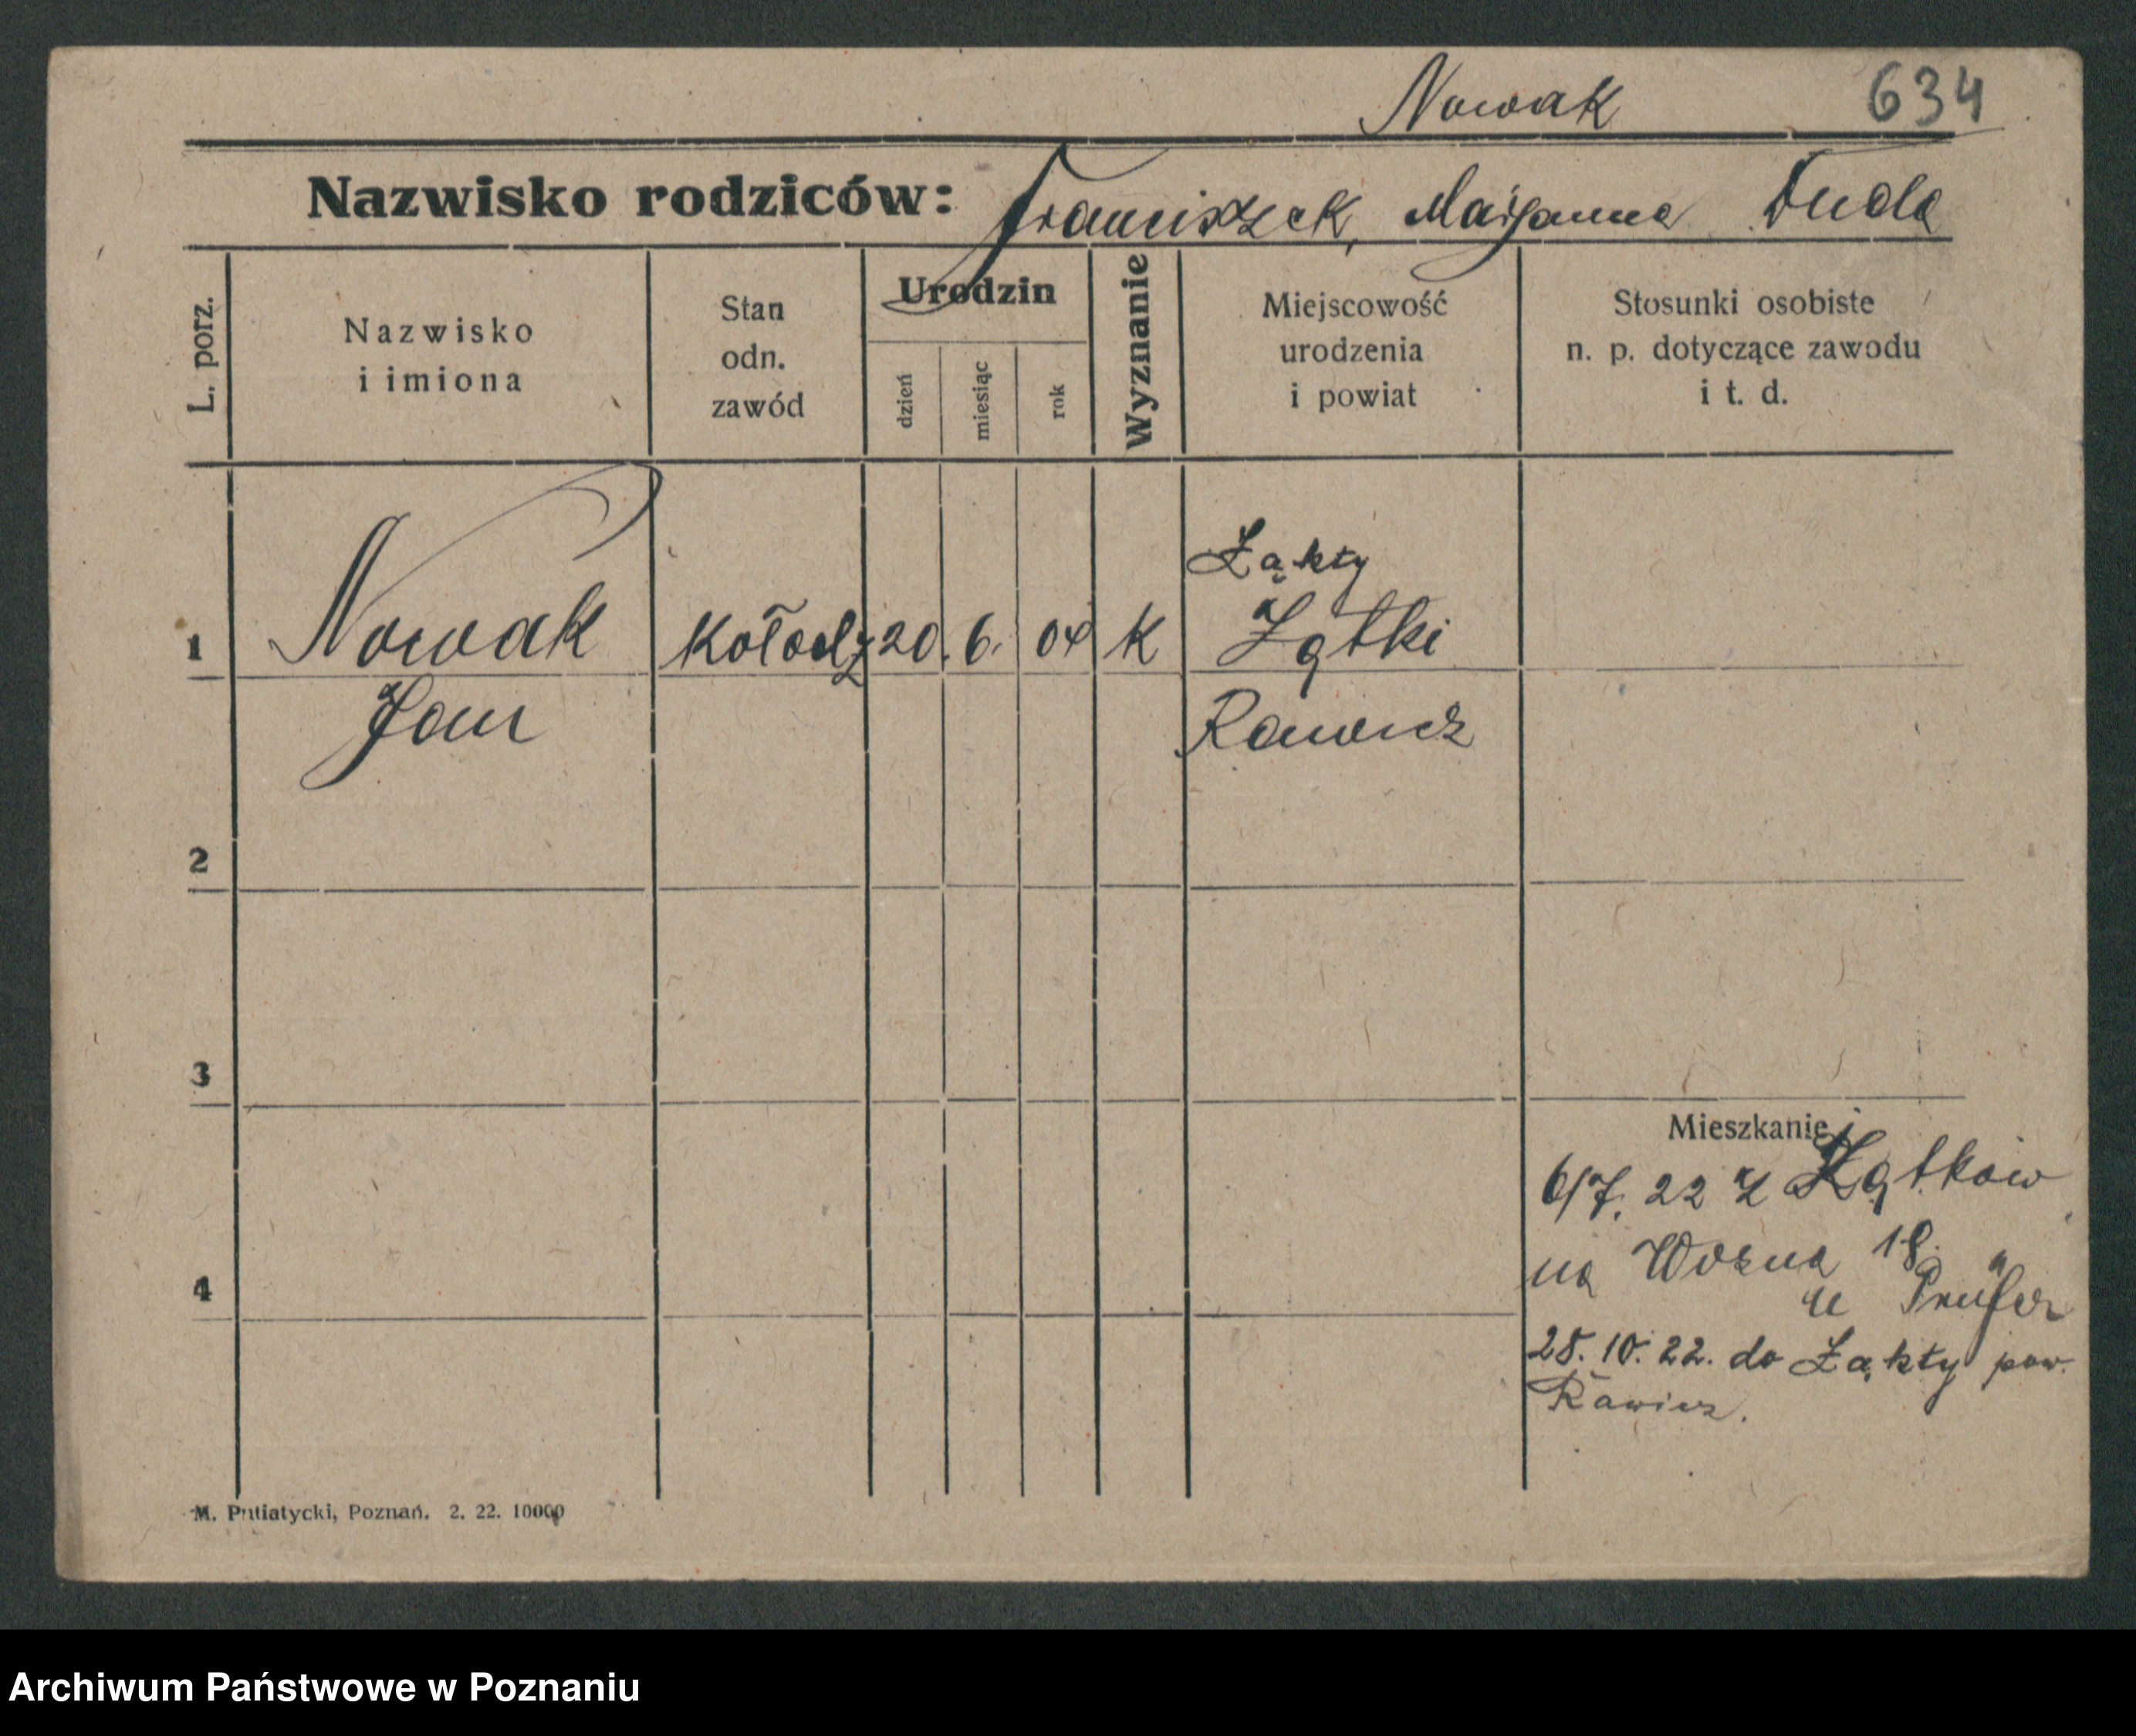 Nowak 634
Nazwisko rodziców: Franciszek, Maryanna Duda
L. porz.
Nazwisko
i imiona
Stan
odn.
zawód
Urodzin
dzień
miesiąc
rok
Wyznanie
Miejscowość
urodzenia
i powiat
Stosunki osobiste
n. p. dotyczące zawodu
i t. d.
Łąkty
1 Nowak Kołodz 20. 6. 04 K Żątki
Jan Rawicz
2
3
4
Mieszkanie
6/7. 22 z Łątków
na Wozna 18.
u Prüfer
28. 10. 22. do Łąkty pow.
Rawicz.
M. Putiatycki, Poznań. 2. 22. 10000
Archiwum Państwowe w Poznaniu